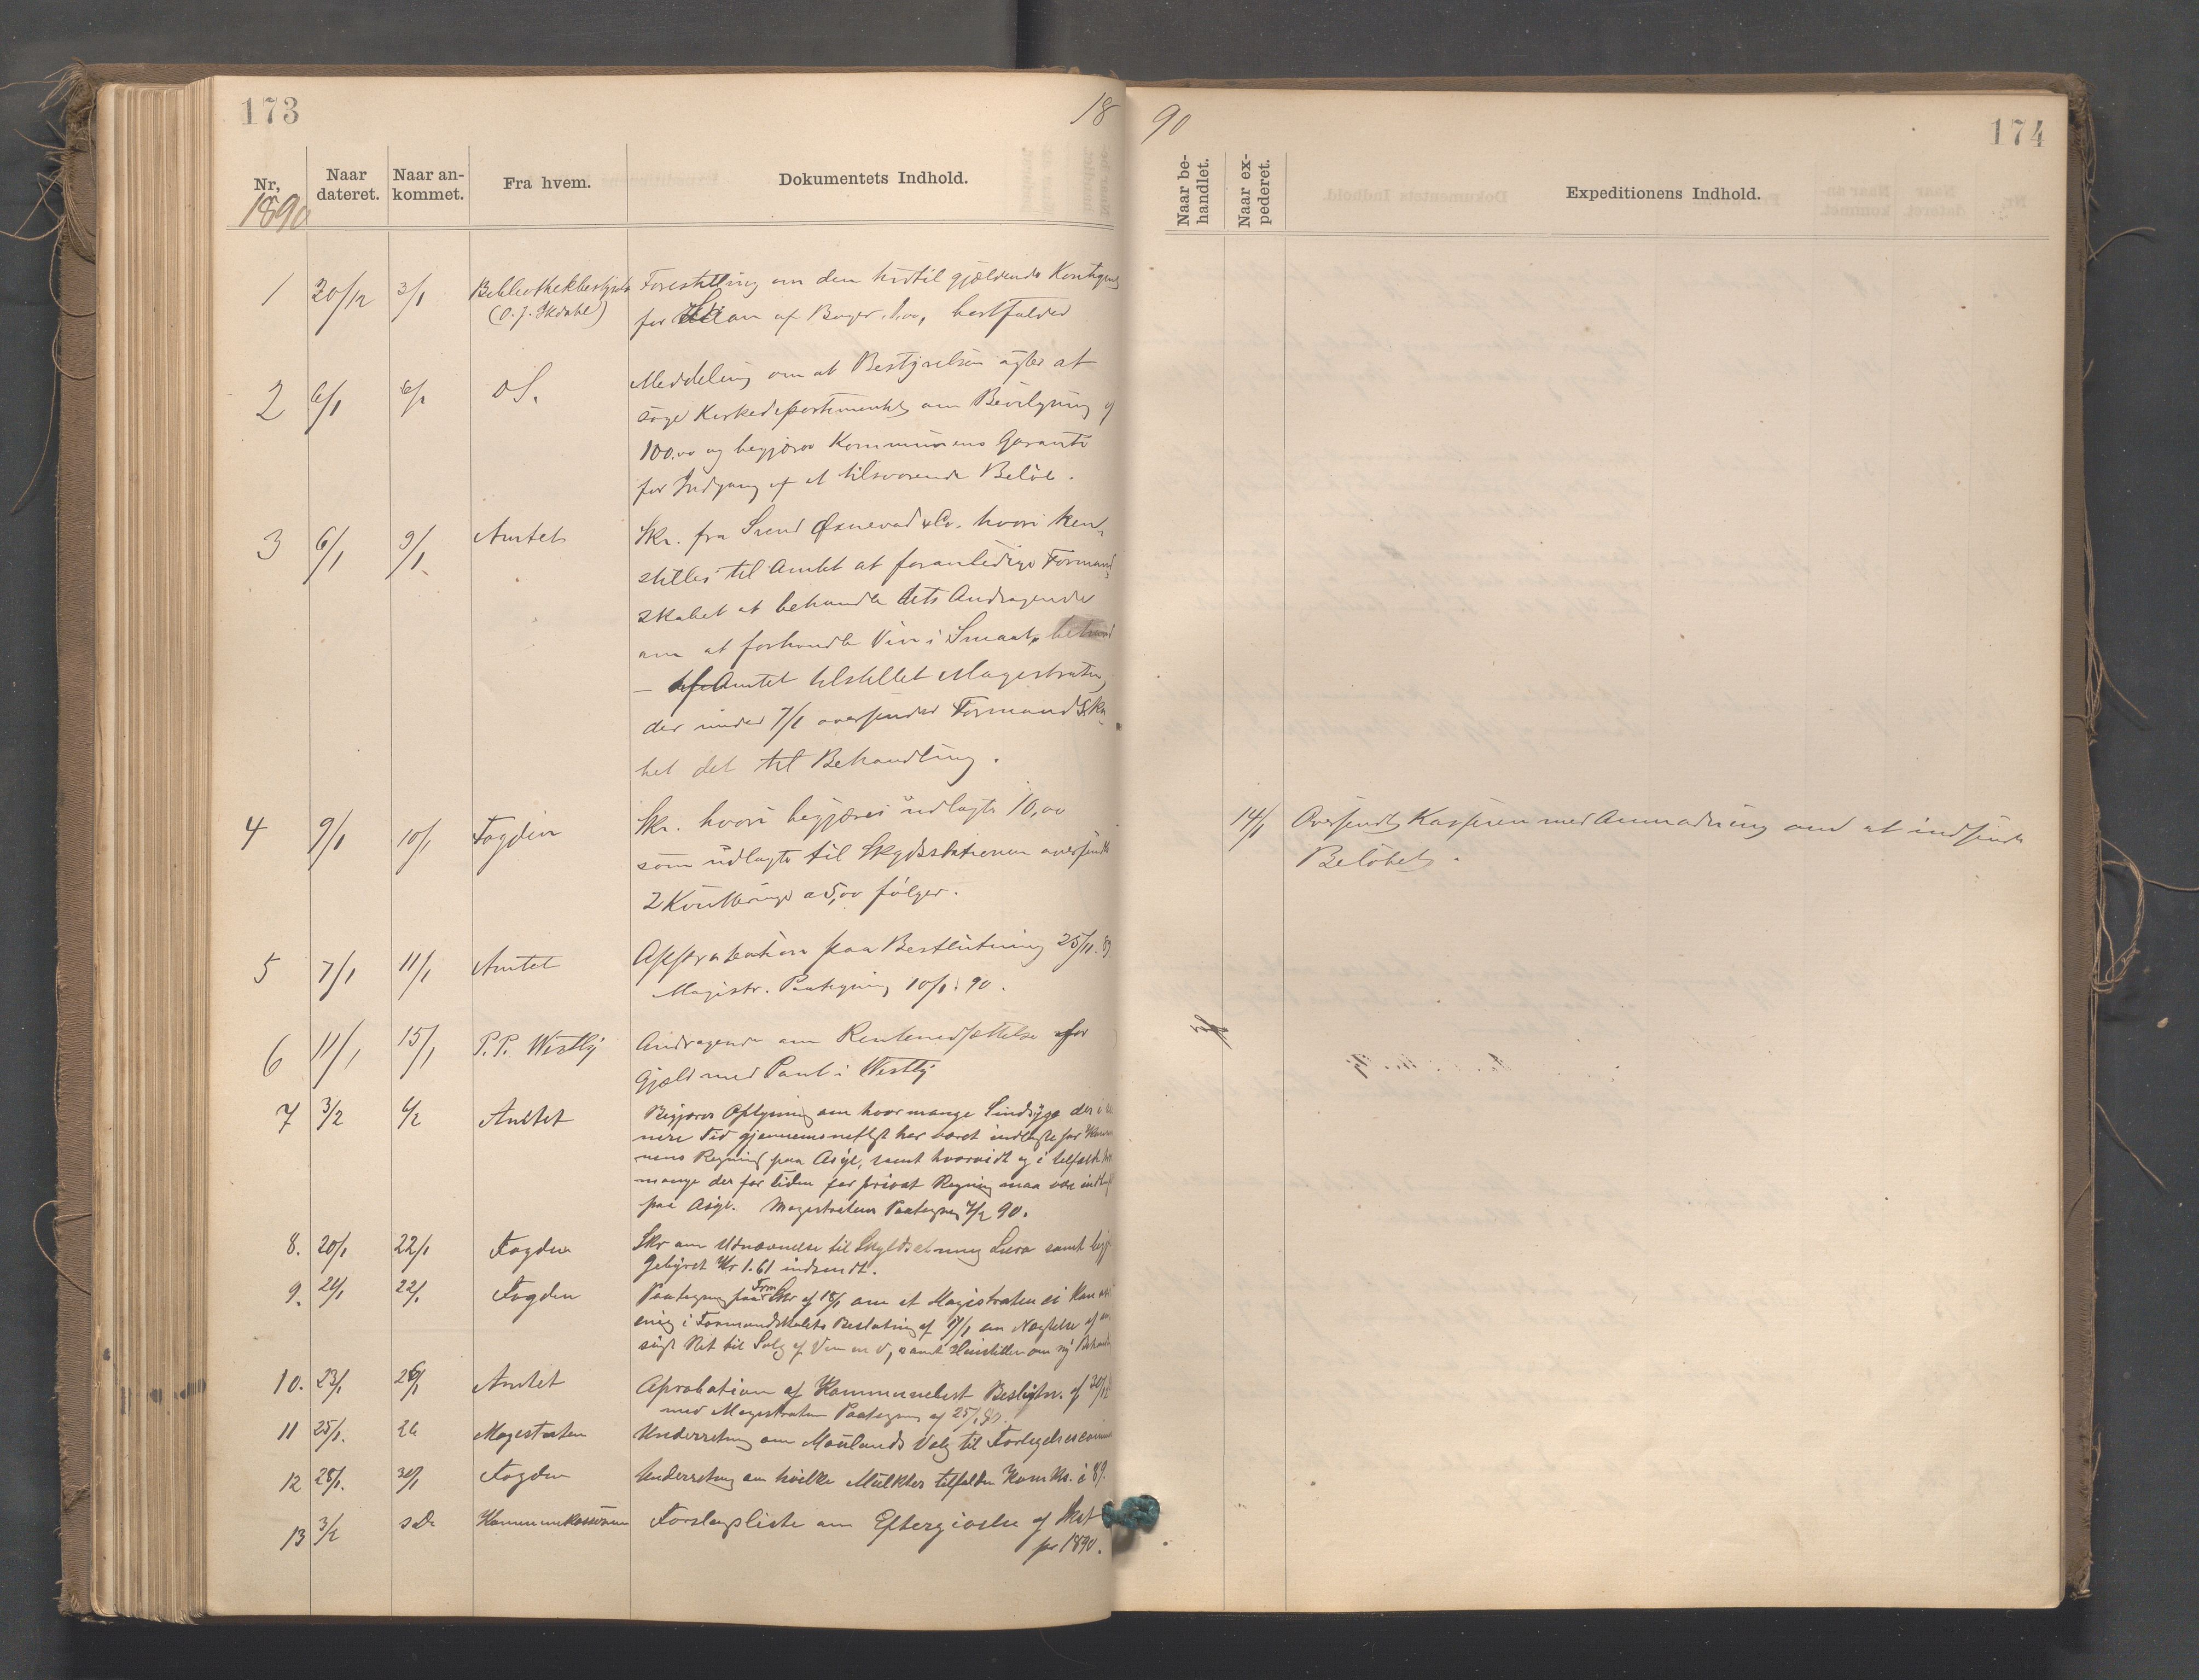 173
18
Nr,
Naar dateret.
Naar ankommet.
Fra hvem.
Dokumentets Indhold.
1890
1 30/12 3/1 Bibliothekbestyrels Forestilling om den hidtil gjældende Kontigent
(O. J. Skdahl) for Laan af Bøger, 1.00, bortfalder
2 6/1 6/1 dS. Meddeling om at Bestyrelsen agter at
søge Kirkedepartementet om Bevilgning af
100.00 og begjærer Kommunens Garanti
for Indgang af et tilsvarende Beløb.
3 6/1 9/1 Amtet Skr. fra Svend Øxnevad & Co. hvori hen-
stilles til Amtet at foranledige Formand
skabet at behandle dets Andragende
om at forhandle Vin i Smaat,
– Amtet tilstillet Magistraten,
der under 7/1 oversender Formandska-
bet det til Behandling.
4 9/1 10/1 Fogden Skr. hvori begjæres udlagte 10,00
som udlagte til Skydsstationen oversendt
2 Kvitteringer a 5,00 følger.
5 7/1 11/1 Amtet Approbation paa Beslutning 25/11. 89
Magistr. Paategning 10/1. 90.
6 11/1 15/1 P. P. Westly Andragende om Rentenedsættelse for
Gjæld med Pant i Westly
7 3/2 6/2 Amtet Begjærer Oplysning om hvor mange Sindsyge der i
nere Tid gjennemsnitligt har været indlagte for Kommu
nens Regning paa Asyl, samt hvorvidt og i tilfælde hvor
mange der for tiden for privat Regning maa være indlagt
paa Asyl. Magistratens Paategning 4/2 90.
8. 20/1 22/1 Fogden Skr om Udnævnelse til Skyldsetning Lura samt
Gebyret Kr 1.61 indsendt.
9. 21/1 22/1 Fogden Paategning paa Form Skr af 18/1 om at Magistraten ei kan
enig i Formandskabets Beslutning af 17/1 om Nægtelse af
søgt Ret til Salg af Vin, samt Henstiller om ny Behand
10. 23/1 26/1 Amtet Aprobation af Kommunebest Beslutn. af 30/12
med Magistraten Paategning af 25/1 90.
11 25/1. 26 Magestraten Underretning om Maulands Valg til
12 28/1. 30/1 Fogden Underretning om hvilke Mulkter tilfalden Kom Ks. i 89.
13 3/2 s D. Kommunekassereren Forslagsliste om Eftergivelse af Skat
pr 1890.
90
174
Naar behandlet.
Naar expederet.
Expeditionens Indhold.
14/1 Oversendt Kasseren med Anmodning om at indsende
Beløbet.